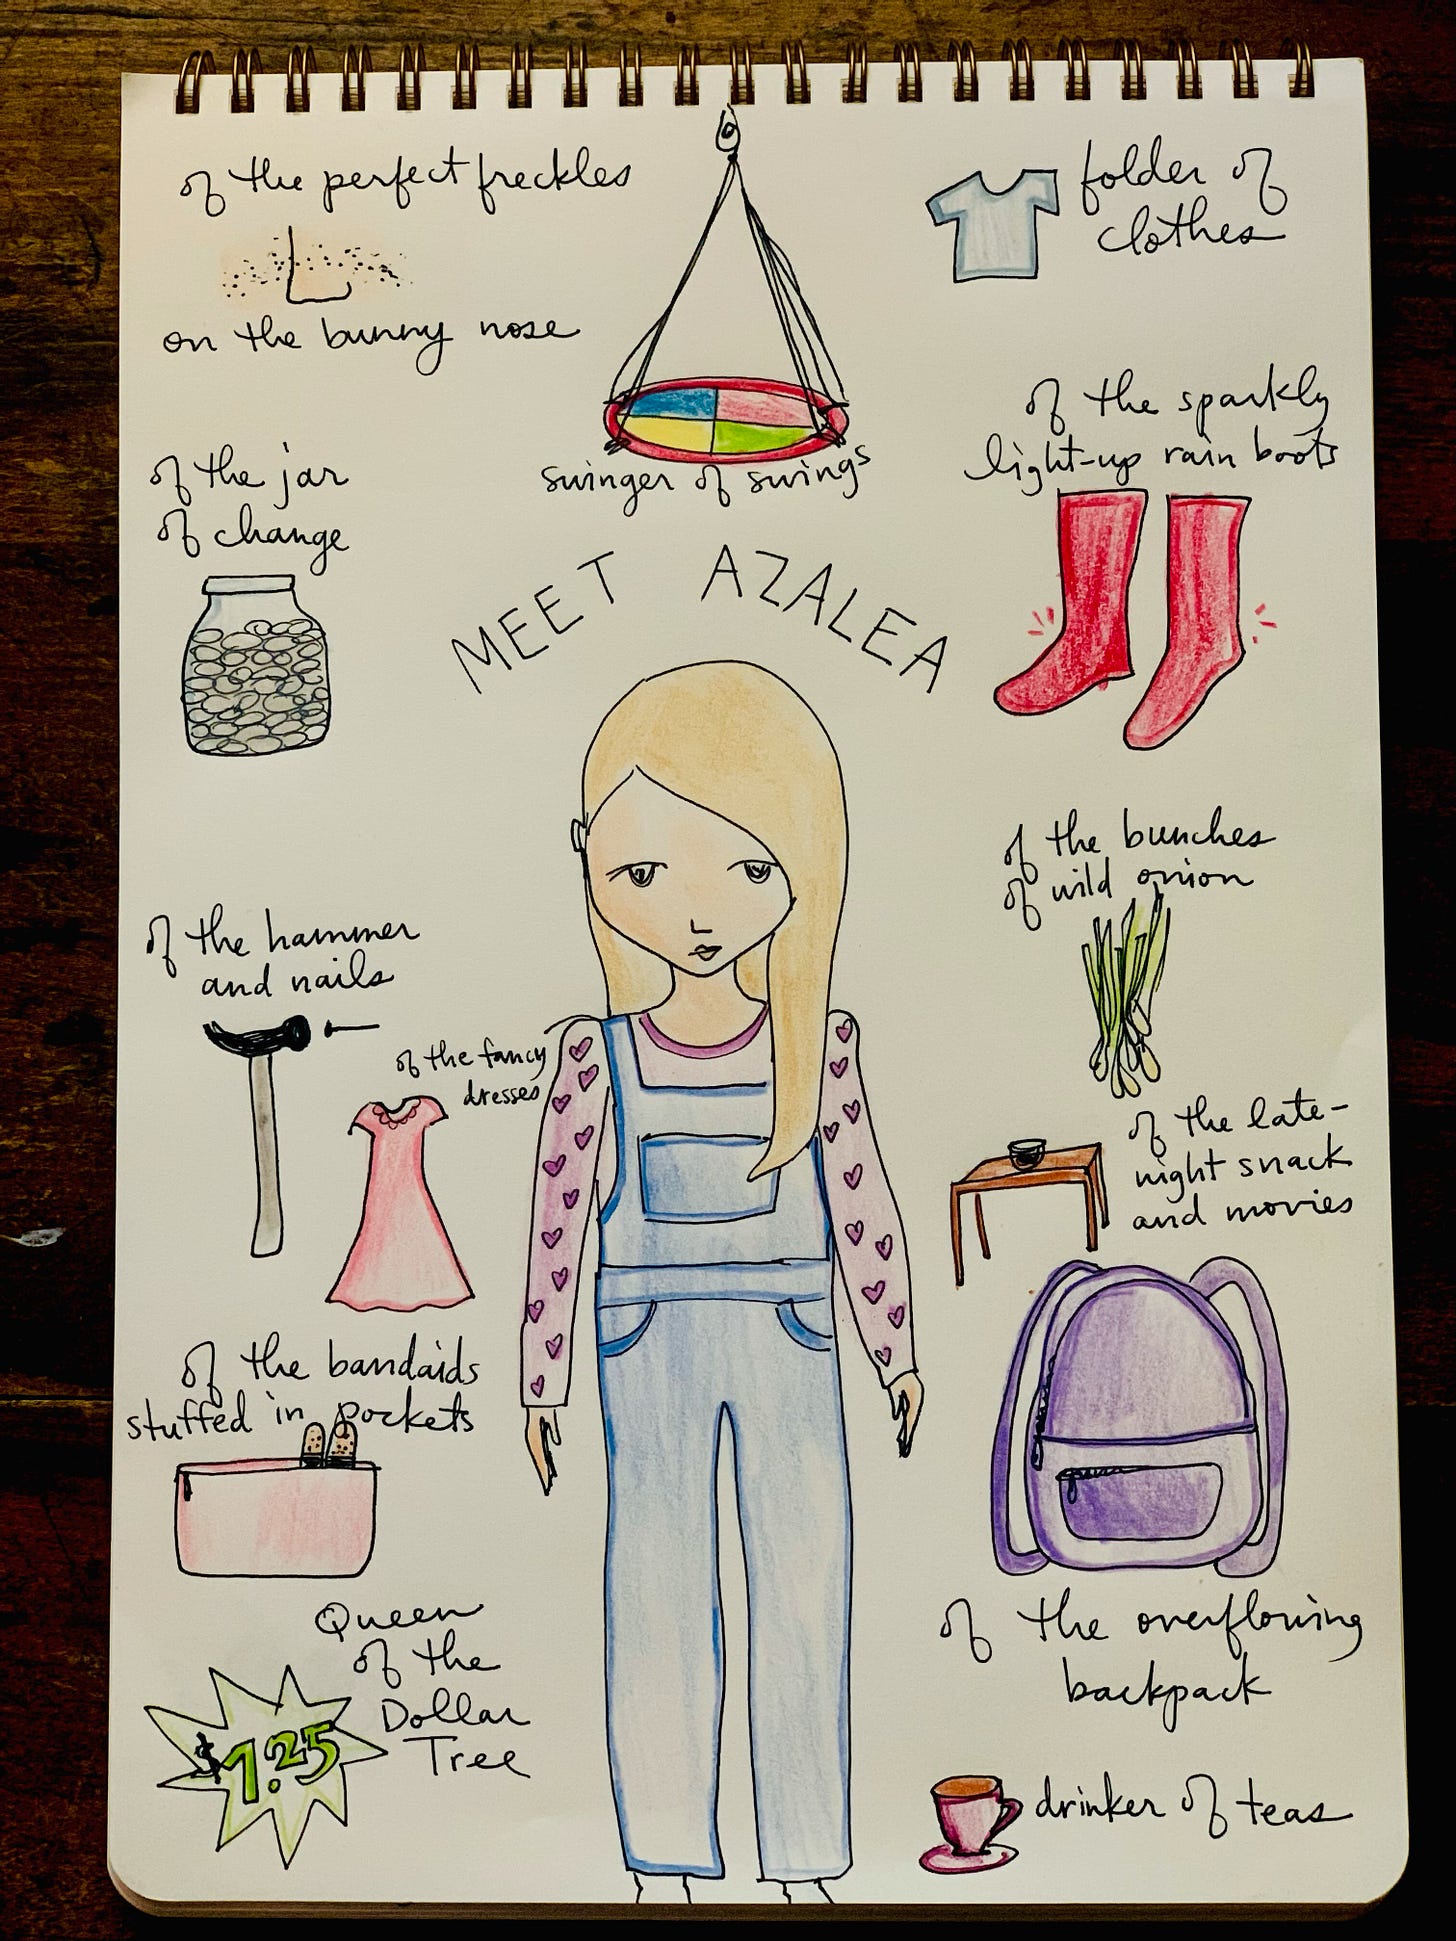 of the perfect freckles
on the bunny nose
swinger of swings
folder of
clothes
of the jar
of change
MEET AZALEA
of the sparkly
light-up rain boots
of the hammer
and nails
of the fancy
dresses
of the bunches
of wild onion
of the late-
night snack
and movies
of the bandaids
stuffed in pockets
of the overflowing
backpack
Queen
of the
Dollar
Tree
$1.25
drinker of teas